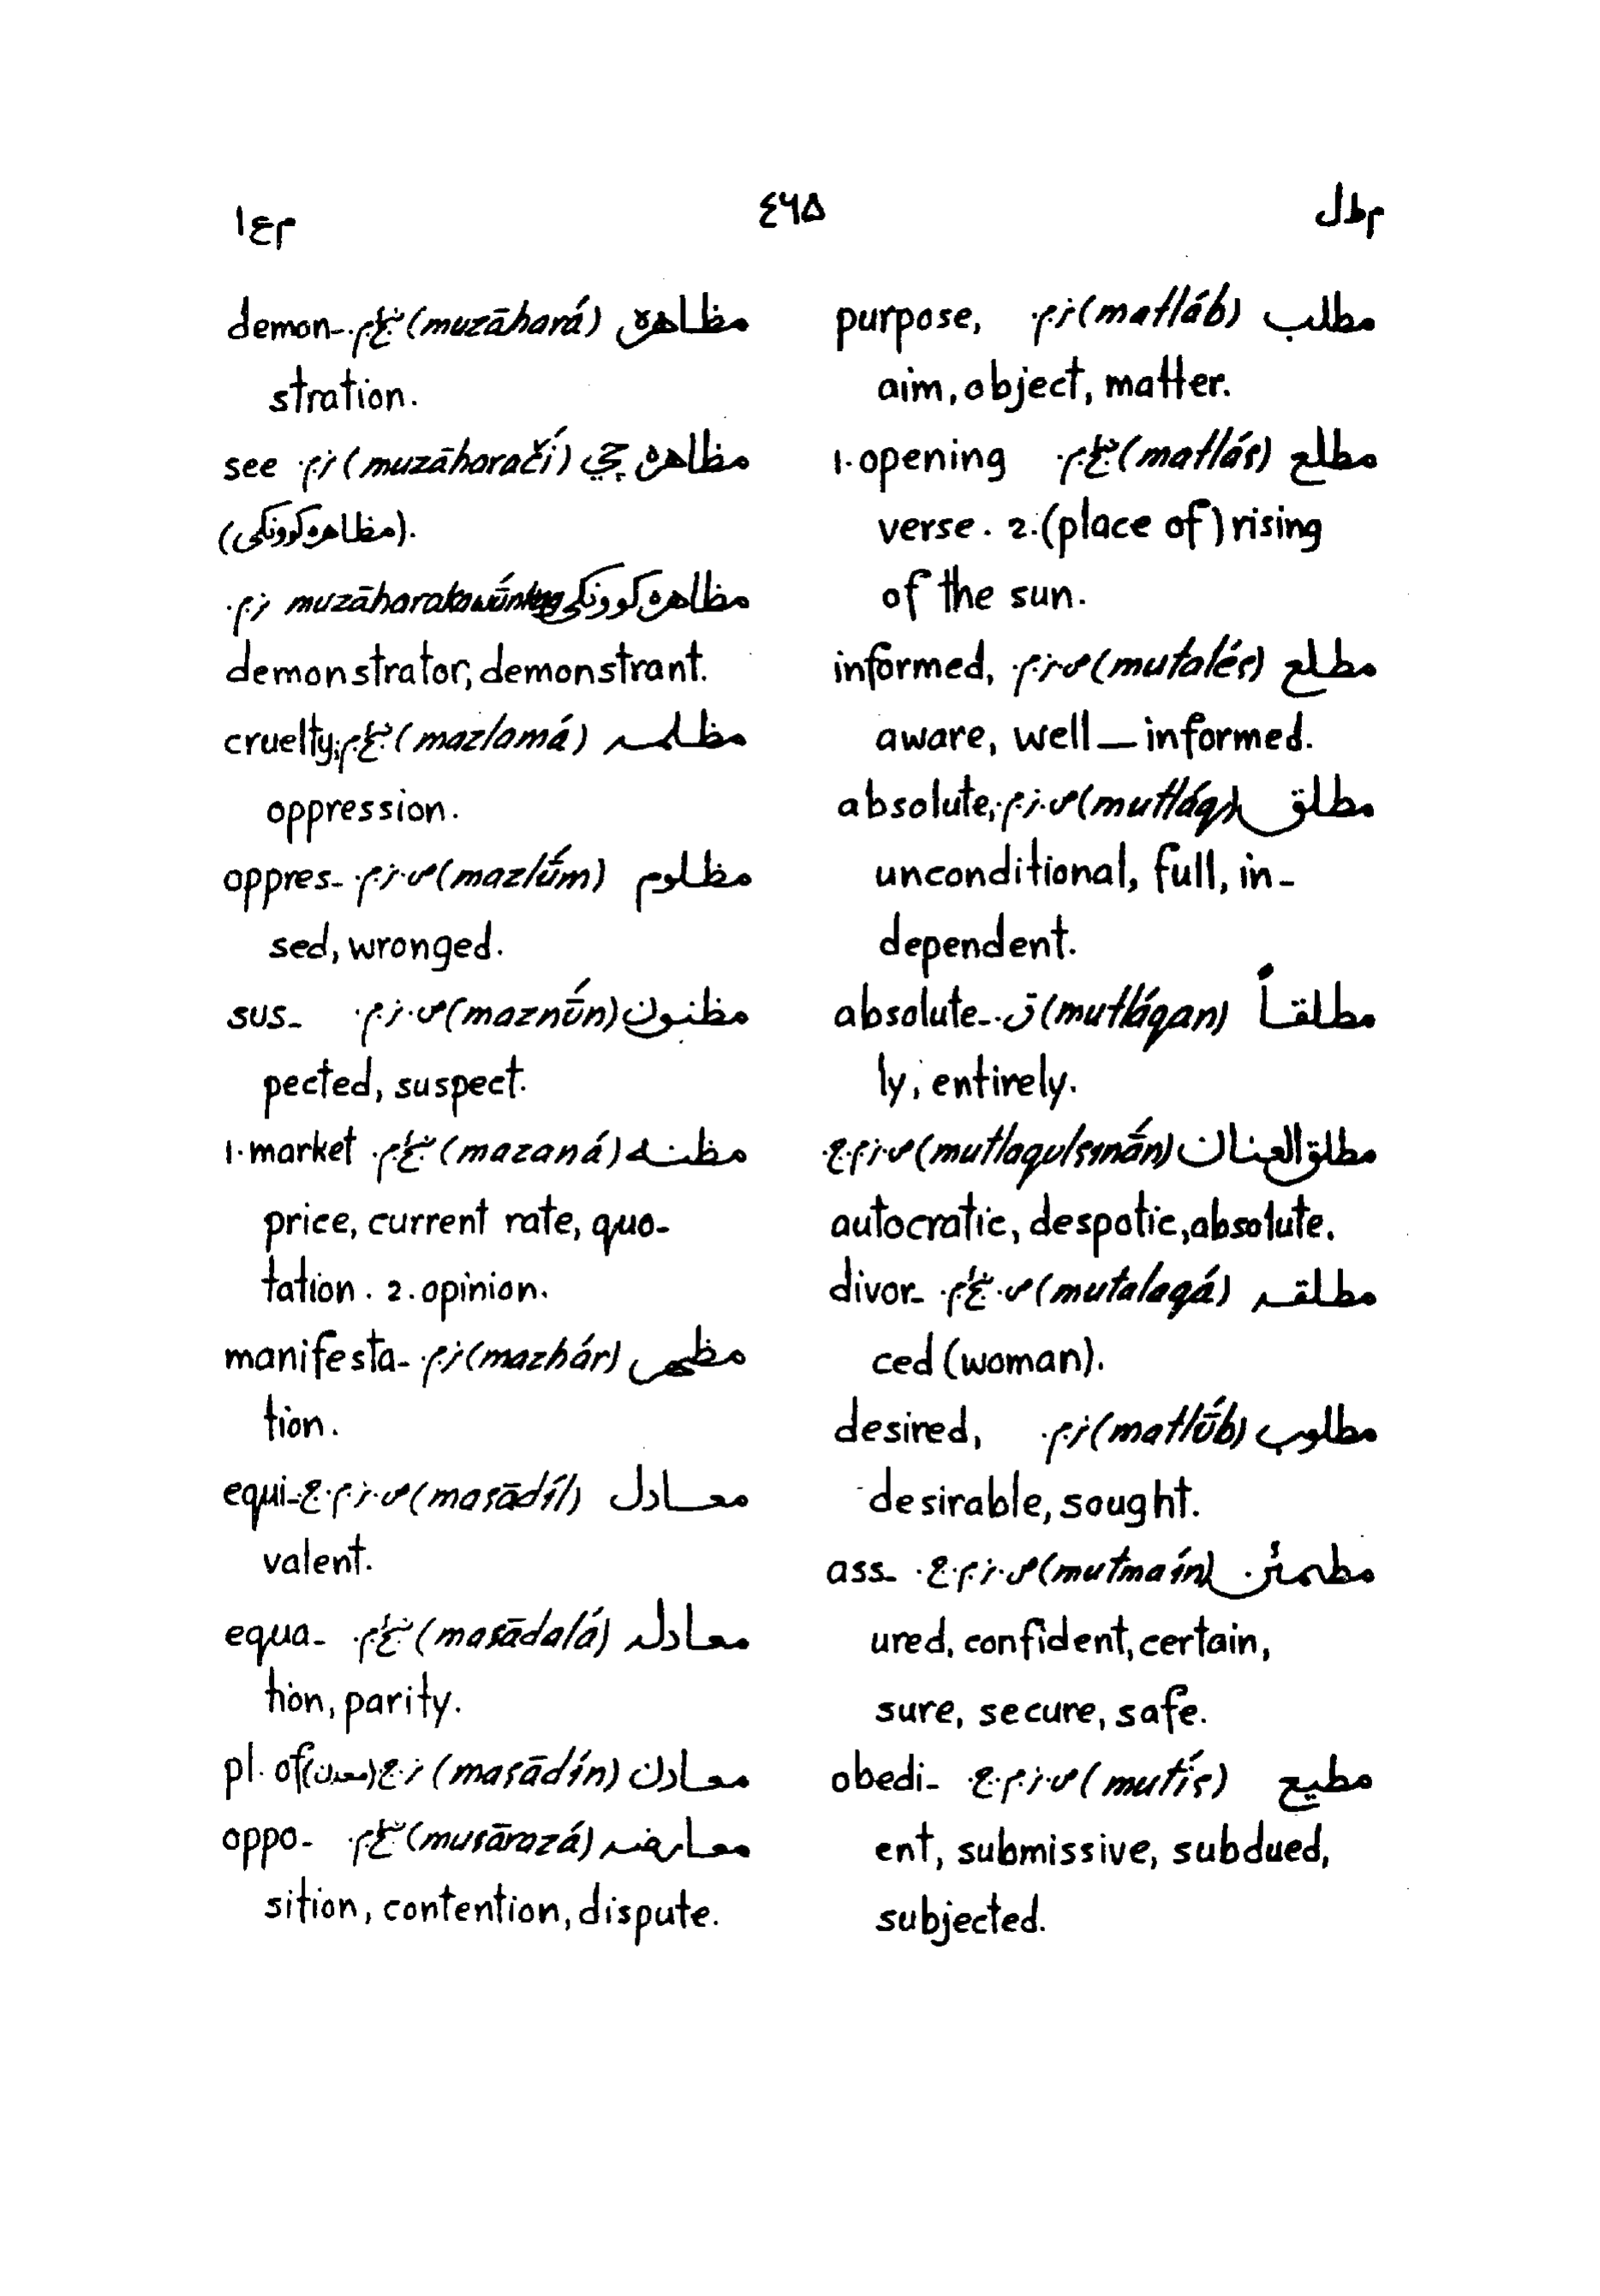 مطل ٤٦۵ معا
مطلب (matláb) نر.م. purpose,
aim, object, matter.
مطلع (matláʕ) ښځ.م. 1. opening
verse. 2. (place of) rising
of the sun.
مطلع (mutaléʕ) ص.نر.م. informed,
aware, well—informed.
مطلق (mutláq) ص.نر.م. absolute,
unconditional, full, in-
dependent.
مطلقاً (mutláqan) ق. absolute-
ly, entirely.
مطلق العنان (mutlaqulʕɪnā́n) ص.نر.م.ج.
autocratic, despotic, absolute.
مطلقه (mutalaqá) ص.ښځ.م. divor-
ced (woman).
مطلوب (matlū́b) نر.م. desired,
desirable, sought.
مطمئن (mutmaín) ص.نر.م.ج. ass-
ured, confident, certain,
sure, secure, safe.
مطيع (mutíʕ) ص.نر.م.ج. obedi-
ent, submissive, subdued,
subjected.
مظاهره (muzāhará) ښځ.م. demon-
stration.
مظاهره چي (muzāharačí) نر.م. see
(مظاهره کوونکی).
مظاهره کوونکی نر.م.
demonstrator, demonstrant.
مظلمه (mazlamá) ښځ.م. cruelty,
oppression.
مظلوم (mazlū́m) ص.نر.م. oppres-
sed, wronged.
مظنون (maznū́n) ص.نر.م. sus-
pected, suspect.
مظنه (mazaná) ښځ.م. 1. market
price, current rate, quo-
tation. 2. opinion.
مظهر (mazhár) نر.م. manifesta-
tion.
معادل (maʕādíl) ص.نر.م.ج. equi-
valent.
معادله (maʕādalá) ښځ.م. equa-
tion, parity.
معادن (maʕādín) نر.ج. pl. of (معدن)
معارضه (muʕārazá) ښځ.م. oppo-
sition, contention, dispute.